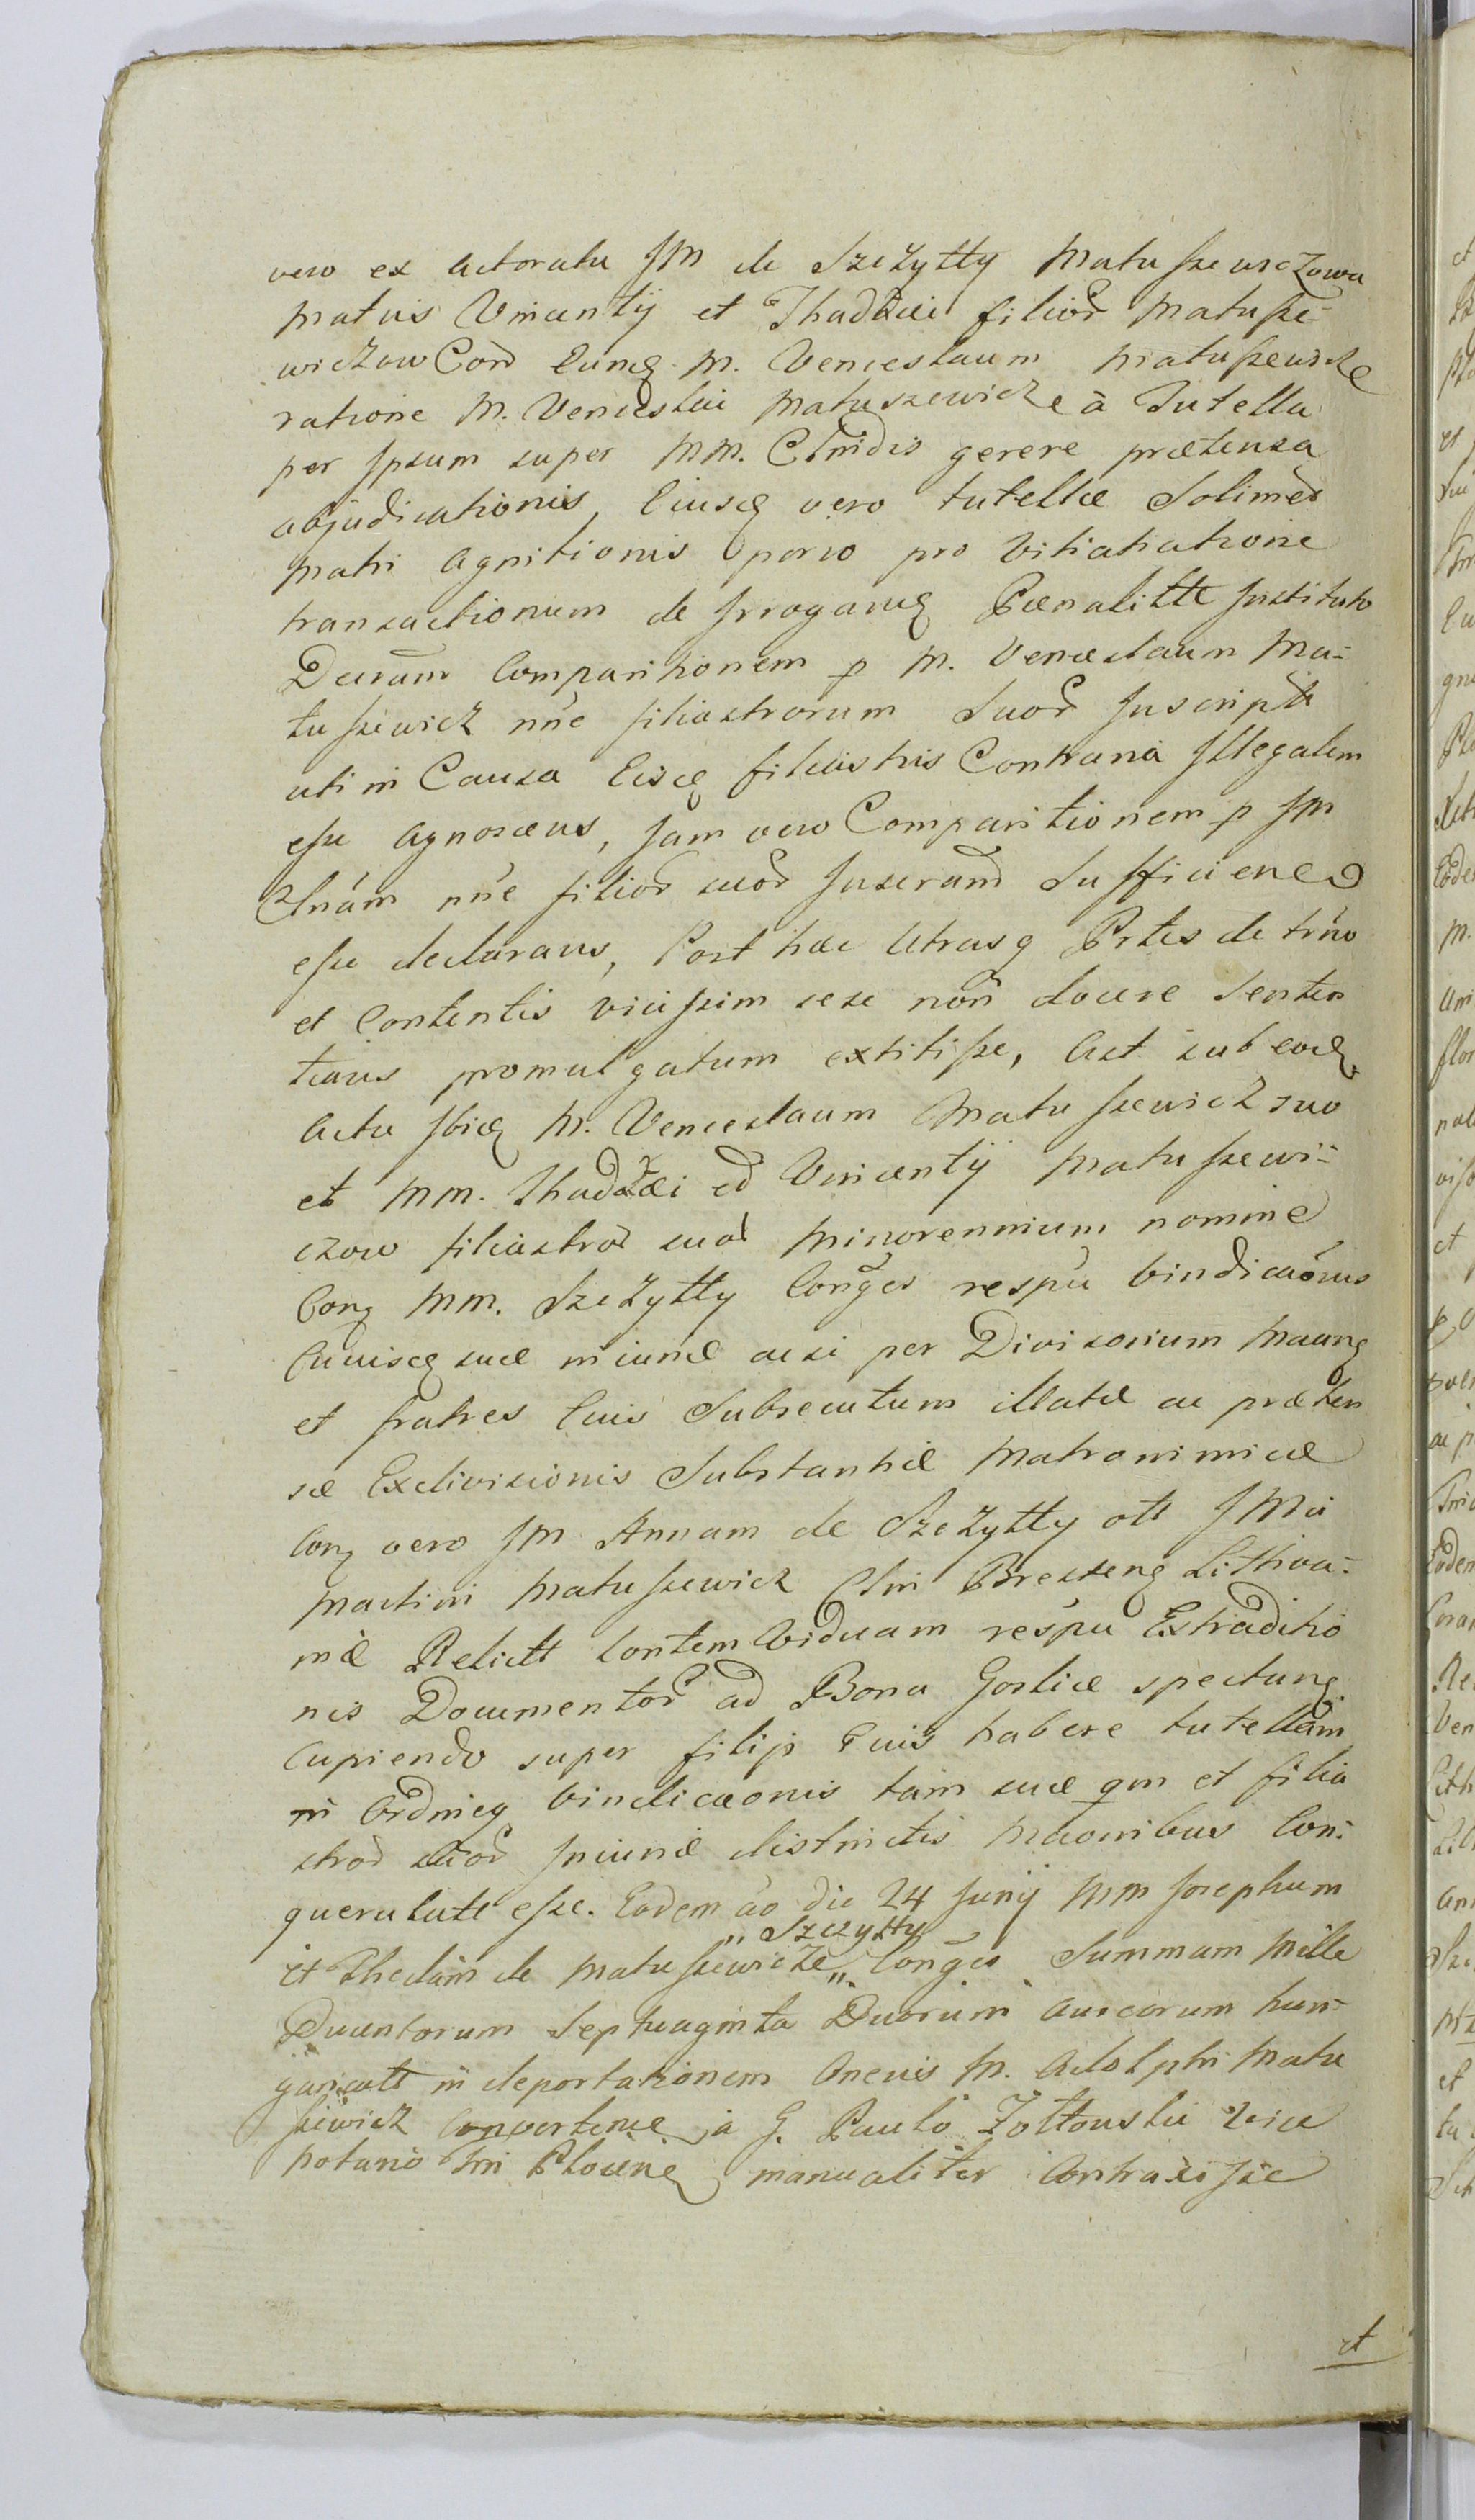 vero ex Actoratu JM de Szczytty Matuszewiczowa
Matris Vincentij et Thaddæi filior Matusze-
wiczow Cord Eumq M. Venceslaum Matuszewicze
ratione M. Venceslai Matuszewicze à Tutella
per Jpsum super MM. Clnidis gerere prætensa
abjudicationis, Eiusq vero tutellæ Solimet
Matri Agnitionis porro pro Vitiatiatione
transactionum de Jrrogan Pænalitte Jnstituto
Decram Comparitionem p M. Venceslaum Ma-
tuszewicz nne filiastrorum Suor Juscript
uti in Causa Eisq filiastris Contraria Jllegalem
esse Agnoscens, Jam vero Comparitionem p JM
Clnám nne filior suor Juserand Sufficiene
esse declarans, Post hæc Utrasq Prtes de trno
et Contentis vicissim sese non docere Senten
tians promulgatum extitisse, Ast sub eodq
Actu Jbiq M. Venceslaum Matuszewicz suo
et MM. Thaddæi ed Vincentij Matuszewi-
czow filiastror suor Minorennium nomine
Conq MM. Szczytty Conges respu Vindicaonis
Cuiusq suæ injuriæ acsi per Divisorium Maung
et fratres Euis Subsecutum illatæ ac præten
sæ Exdivisionis Substantiæ Matronimicæ
Conq vero JM Annam de Szczytty ott JMci
Martini Matuszewicz Clni Brestenq Lithva-
niæ Relictt Contem Viduam respu Extraditio
nis Documentor ad Bona Gosliæ spectanq
Cupiendo super filijs Euis habere tutellam
in Ordnieq Vindicaonis tam suæ qm et filia
stror suor Jniuriæ distinctis Maonibus Con-
querulatt esse. Eodem ao die 24 Junij MM Josephum
et Theclam de Matuszewicze „ Szczytty „ Conges Summam Mille
Ducentorum Septuaginta Duorum Aureorum hun-
garicatt in deportationem Oneris M. Adolphi Matu
szewicz Convertenæ à G. Paulo Zołtowski Vice
Notario Trri Plocenq manualiter Contraxisse
et